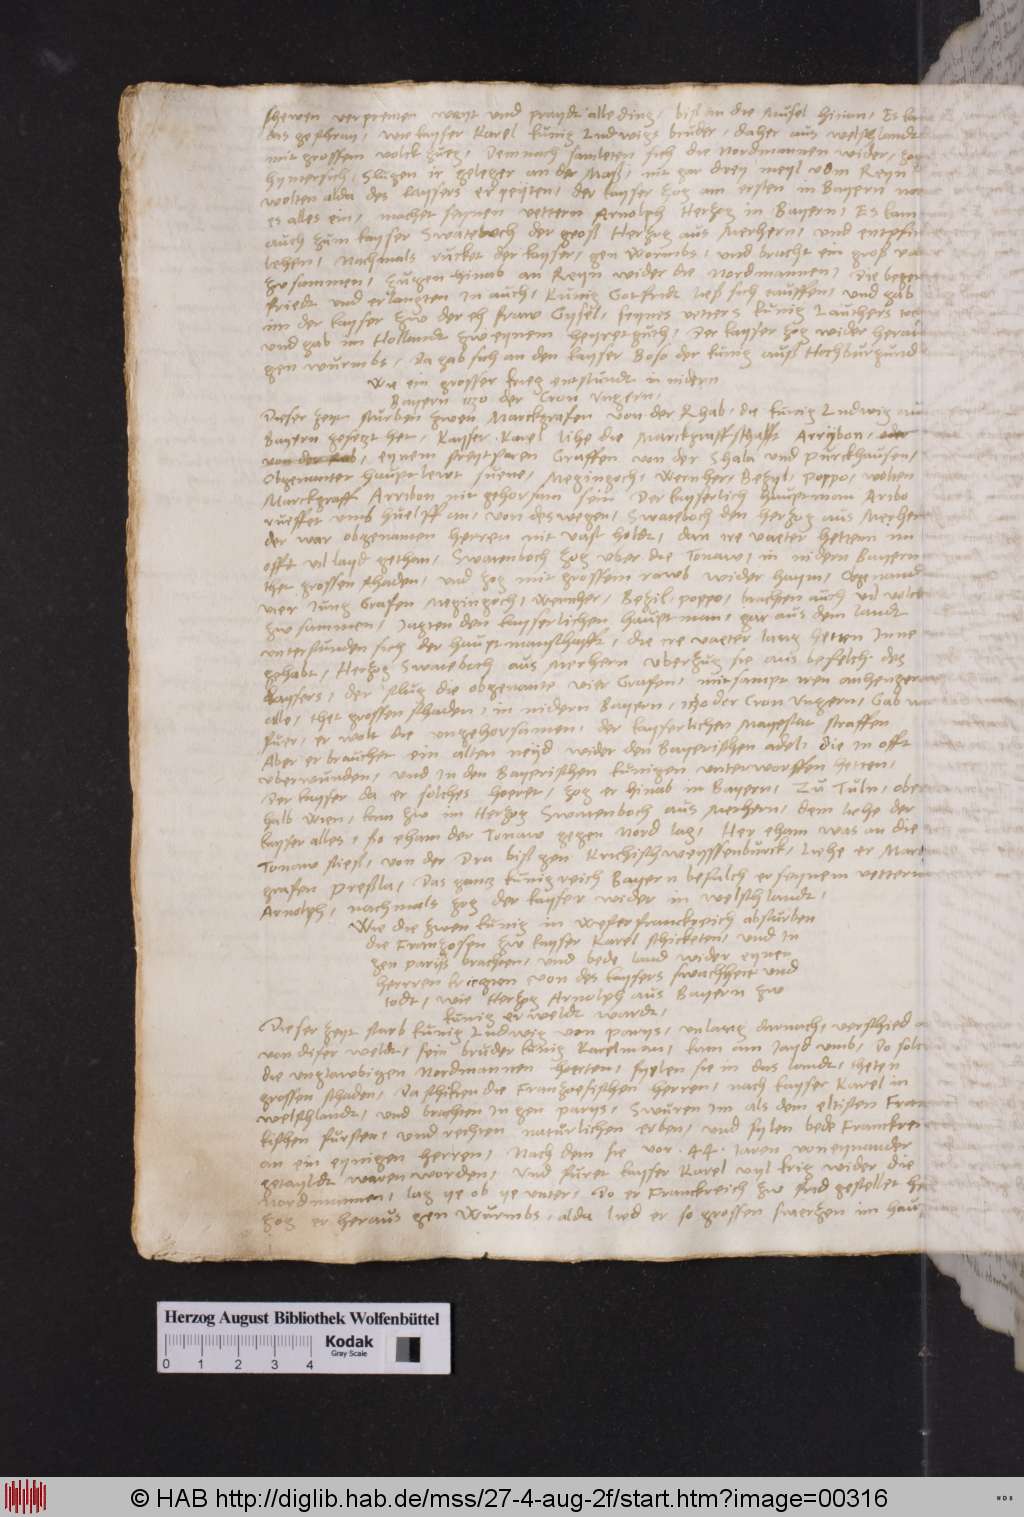 verpremen wayt und praydt alle ding, bisz an die Musel hinan, Es
das geschray, wie kayser Karel kunig Ludwigs bruder, daher aus welschlandt
mit grossem volck zueg, Demnach samleten sich die Nordmannen wider,
hyntersich, Slugen ir geleger an der Masz, nit gar drey meyl vom Reyn
wolten alda des kaysers der kayser zog am ersten in Bayern
es alles ein, machet seynen vettern Arnolph Hertzog in Bayern, Es kam
auch zum kayser Swateboch der grosz Hertzog aus Merhern, und entpfin
lehen, Nachmals rucket der kayser, gen Wormbs, und bracht ein grosz
zu sammen, zugen hinab an Reyn wider die Nordmannen, Die
friedt und erlangten in auch, Kunig Gotfridt liesz sich tauffen, und gab
im der kayser zw der eh fraw Gysel, seynes vetters kunig Lauthers
und gab im Hollandt zw eynem heyretguth, Der kayser zog wider
gen wurmbs, Da gab sich an den kayser Boso der kunig ausz Hochburgund
Wie ein grosser krieg entstundt in nidern
Bayern der Cron Ungern,
Dieser zeyt sturben zwen Marckgrafen von der Rhab, die kunig Ludwig
Bayern gesetzt het, Kayser Karel lihe die Marckgraffschafft Arrybon, oder
von der Rab, eynem Graffen von der Shala und Purckhausen,
Obgenanter hauptlewt suene, Megingoch, Wernher, Betzyl, Poppo, wolten
Marckgraff Arribon nit gehorsam sein Der kayserlich hauptman Aribo
rueffet umb huelff an, von deswegen, Swateboch den hertzog aus
der war obgenanten herren nit vast holdt, dan ire vaeter hetten im
offt vil layd gethan, Swatenboch zog uber die Tonaw, in nidern Bayern
thet grossen schaden, und zog mit grossem rawb wider haym, Obgenand
vier Jung Grafen Megingoch, Wernher, Betzil, poppo, brachten auch vil volck
zw sammen, Jagten den kayserlichen hauptman, gar aus dem landt
unterstunden sich der hauptmanschafft, die ire vaeter lang hetten Inne
gehabt, Hertzog Swateboch aus Merhern uberzug sie aus befelch des
kaysers, der slug die obgenante vier Grafen, mitsampt iren anhenger
alle, thet grossen schaden, in nidern Bayern, der Cron Ungern, Gab
fuer, er wolt die ungehorsamen, der kayserlichen Magestat straffen
Aber er brauchet ein alten neyd wider den Bayerischen adel, die in offt
uberwunden, und in den Bayerischen kunigen unterworffen hetten,
Der kayser da er solches hoeret, zog er hinab in Bayern, Zu Tuln,
halb Wien, kam zw im Hertzog Swatenboch aus Merhern, dem liehe der
kayser alles, so eham der Tonaw gegen Nord lag, Her eham was an die
Tonaw stiesz, von der Dra bisz gen Krichischweyssenburck, Liehe er
grafen Presla, Das gantz kunigreich Bayern befalch er seynem vettern
Arnolph, nachmals zog der kayser wider in welschlandt,
Wie die zwen kunig in Westerfranckreich absturben
die Frantzosen zw kayser Karel schicketen, und In
gen parys brachten, und bede land wider eynen
herrren kriegten von des kaysers swachheit und
todt, wie Hertzog Arnolph aus Bayern zw
kunig erweldt wardt,
Dieser zeyt starb kunig Ludwig von parys, unlang darnach, verschied
von diser weldt, sein bruder kunig Karelman, kam am Jayd umb, Do
die unglawbigen Nordmannen hoerten, fyelen sie in das landt, theten
grossen schaden, Da schicken die Frantzoesischen herren, nach kayser Karel in
welschlandt, und brachten In gen parys, Swuren im als dem eltisten
kischen fursten, und rechten naturlichen erben, und fylen bede
an ein eynigen herren, Nach dem sie vor .44. Jaren voneynander
getayldt waren worden, Und furet kayser Karel vyl krig wider die
Nordmannen, lag ye ob ye unter, Do er Franckreich zw frid gestellet
zog er heraus gen Wurmbs, alda lied er so grossen smertzen im
Herzog August Bibliothek Wolfenbüttel
Kodak
Gray Scale
0 1 2 3 4
© HAB http://diglib.hab.de/mss/27-4-aug-2f/start.htm?image=00316